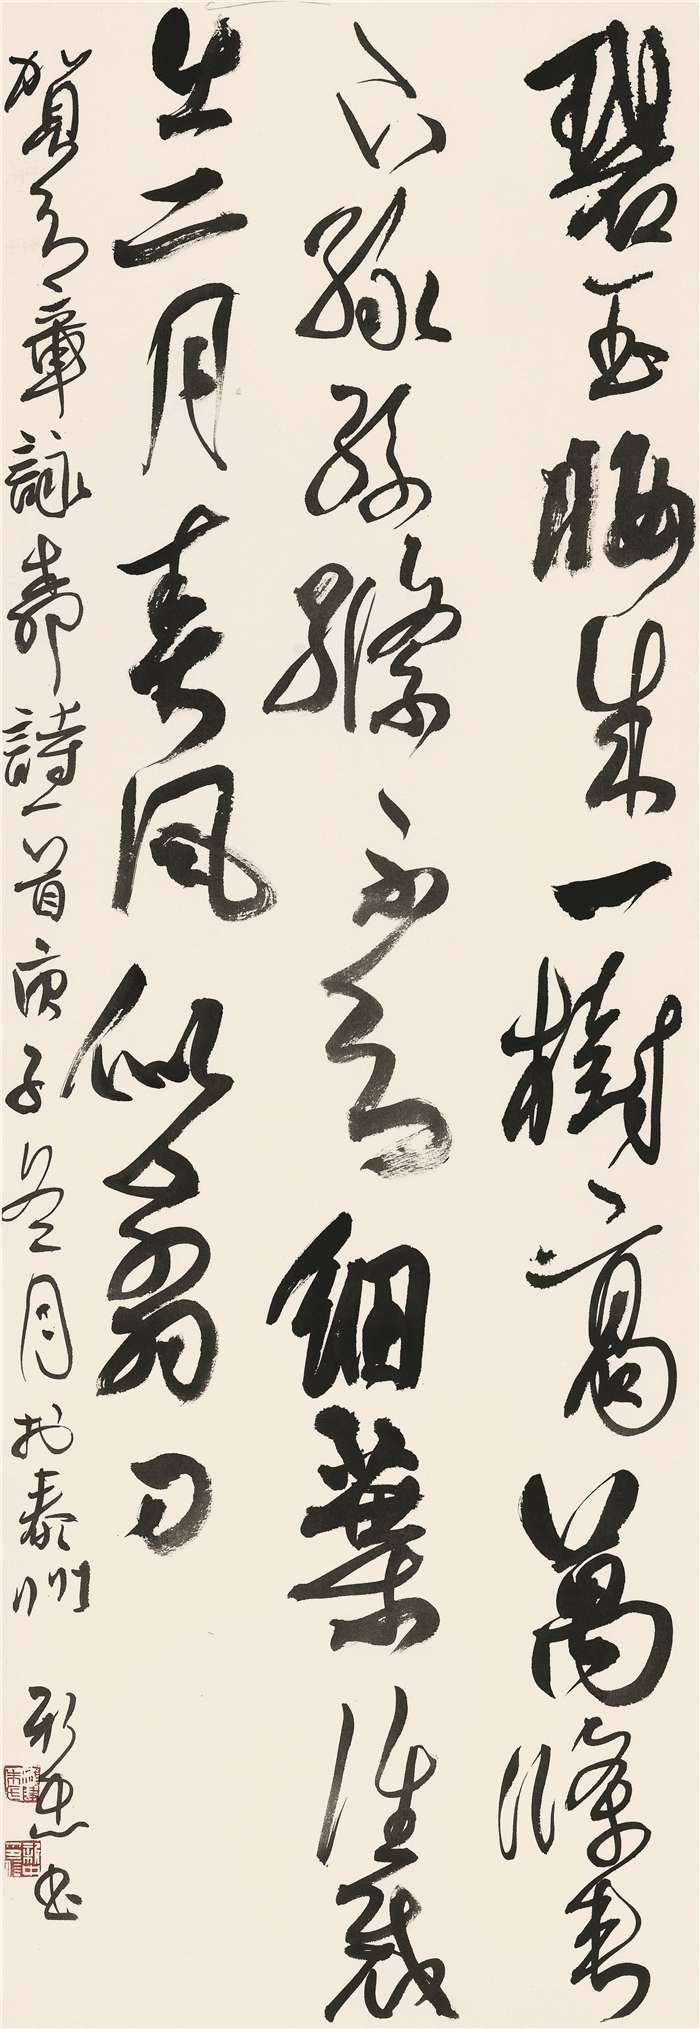 碧玉妝成一樹高萬條垂
下綠絲縧不知細葉誰裁
出二月春風似剪刀
賀知章詠柳詩一首庚子冬月於泰州 新忠書